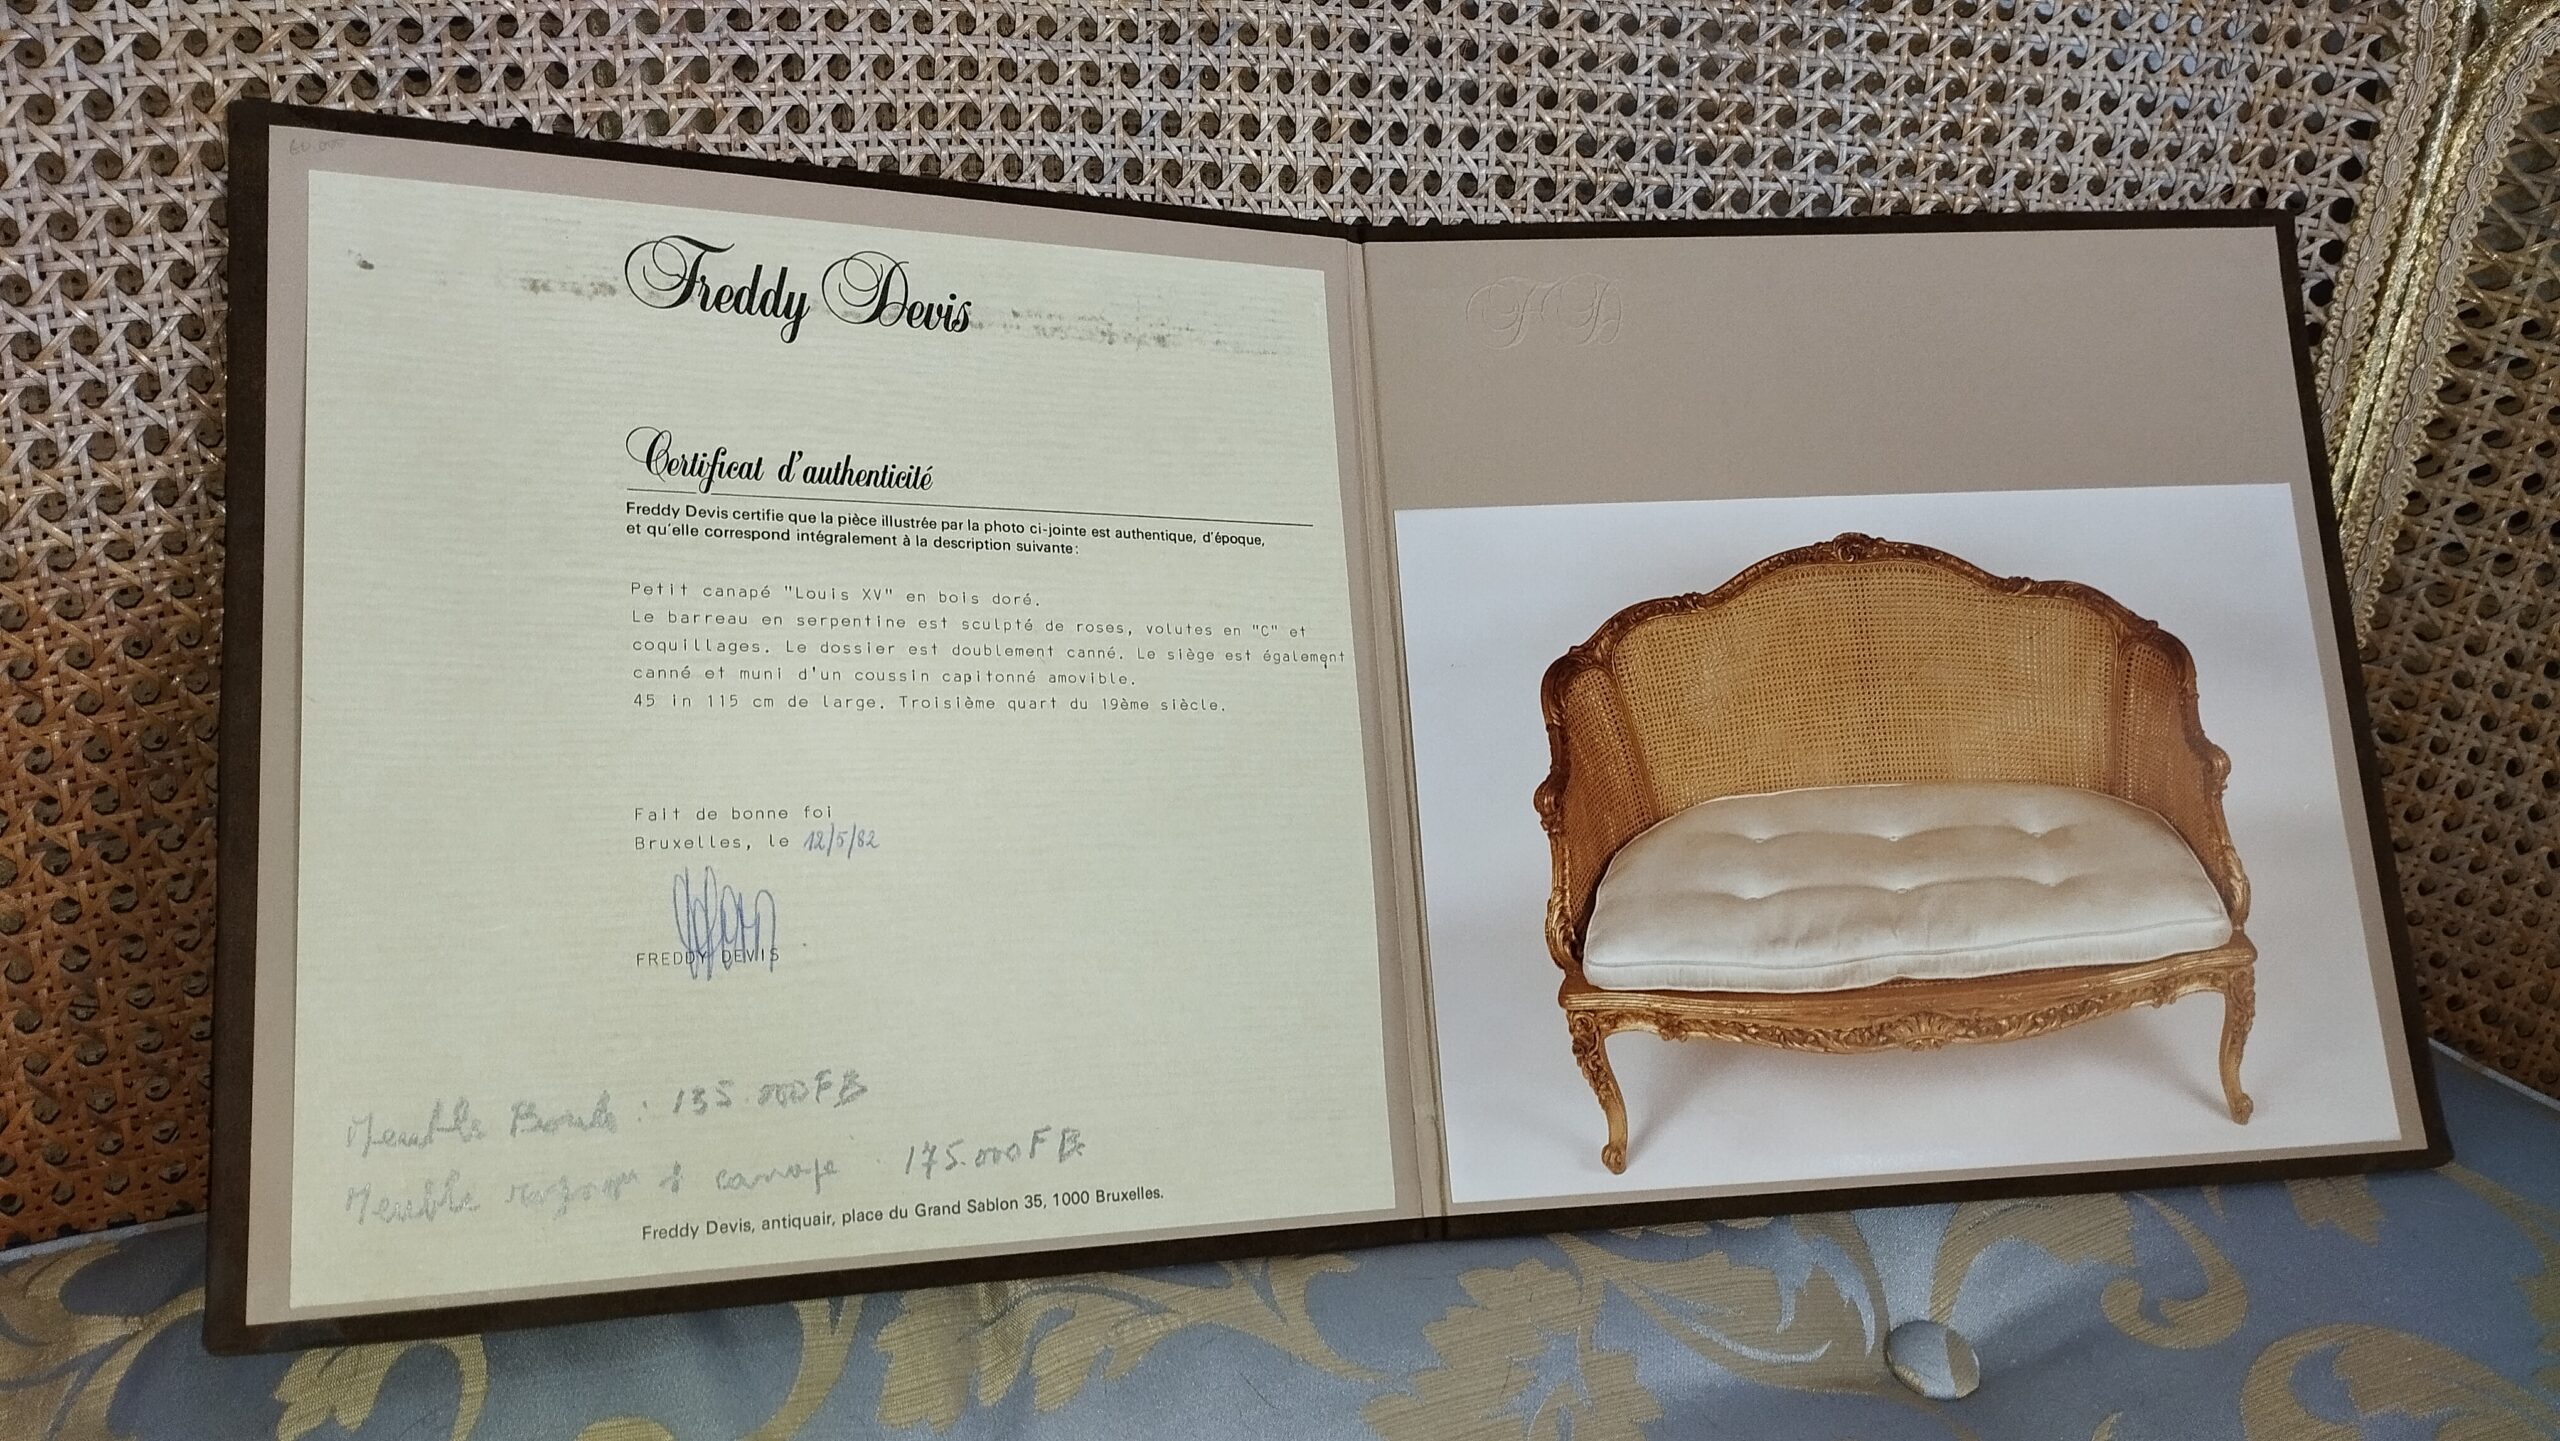 60.000
Freddy Devis
Certificat d'authenticité
Freddy Devis certifie que la pièce illustrée par la photo ci-jointe est authentique, d'époque,
et qu'elle correspond intégralement à la description suivante:
Petit canapé "Louis XV" en bois doré.
Le barreau en serpentine est sculpté de roses, volutes en "C" et
coquillages. Le dossier est doublement canné. Le siège est également
canné et muni d'un coussin capitonné amovible.
45 in 115 cm de large. Troisième quart du 19ème siècle.
Fait de bonne foi
Bruxelles, le 12/5/82
FREDDY DEVIS
Meuble : 135.000 FB
Meuble canapé : 175.000 FB
Freddy Devis, antiquair, place du Grand Sablon 35, 1000 Bruxelles.
FD